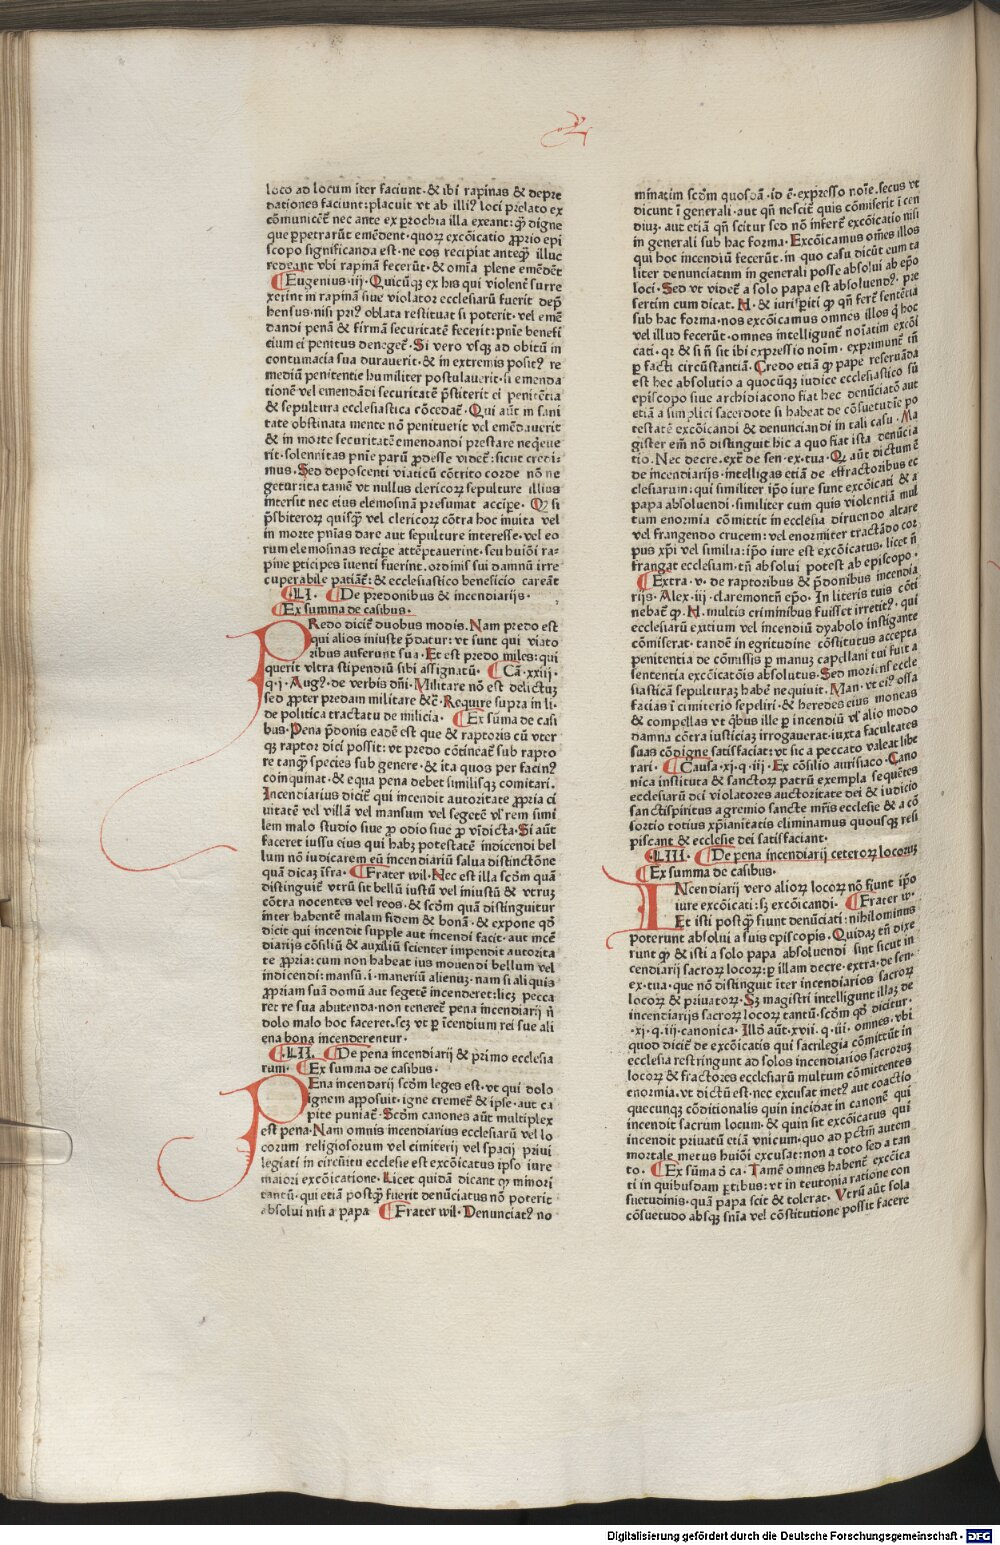 loco ad locum iter faciunt· & ibi rapinas & depre
dationes faciunt: placuit vt ab illiꝰ loci prelato ex
cōmunicēt̄ nec ante ex ꝑrochia illa exeant: qꝫ digne
que ꝑpetrarūt emēdent· quoꝝ excōicatio ꝓprio epi
scopo significanda est· ne eos recipiat anteqꝫ illuc
redeant vbi rapinā fecerūt· & omīa plene emēdēt
Eugenius·iij· Quicūqꝫ ex his qui violent̄ surre
xerint in rapinā siue violatoꝝ ecclesiarū fuerit dep̄
hensus· nisi priꝰ oblata restituat si poterit· vel emē
dandi penā & firmā securitatē fecerit: pn̄ie benefi
cium ei penitus denegeť· Si vero vsqꝫ ad obitū in
contumacia sua durauerit· & in extremis positꝰ re
mediū penitentie humiliter postulauerit· si emenda
tionē vel emendādi securitatē p̄stiterit ei penitētia
& sepultura ecclesiastica cōcedať· Qui aūt in sani
tate obstinata mente nō penituerit vel emēdauerit
& in morte securitatē emendandi prestare neqͥuerit
rit· solennitas pn̄ie parū ꝓdesse videť: sicut credi:
mus· Sed deposcenti viaticū cōtrito corde nō ne
getur· ita tamē vt nullus clericoꝝ sepulture illius
intersit nec eius elemosinā presumat accipe· Qꝫ si
p̄sbiteroꝝ quisqꝫ vel clericoꝝ cōtra hoc inuita vel
in morte pn̄ias dare aut sepulture interesse· vel eo
rum elemosinas recipe attēptauerint· seu huiōi ra-
pine pticipes iuenti fuerint· ordinis sui damnū irre
cuperabile patianť: & ecclesiastico beneficio careāt
·LI· De predonibus & incendiarijs·
Ex summa de casibus·
PRedo diciť duobus modis. Nam predo est
qui alios iniuste p̄datur: vt sunt qui viato
ribus auferunt sua· Et est predo miles: qui
querit vltra stipendiū sibi assignatū· Cā·xxiij·
q·i· Augꝰ· de verbis dn̄i· Militare nō est delictuꝫ
sed ꝓpter predam militare &c̄· Require supra in li·
de politica tractatu de milicia· Ex sūma de casi
bus· Pena p̄donis eadē est que & raptoris cū vter
qꝫ raptor dici possit: vt predo cōtineať sub rapto
re tanqꝫ species sub genere· & ita quos per facinꝰ
coinqunat· & equa pena debet similisqꝫ comitari·
Incendiarius diciť qui incendit autoritate ꝓpria ci
uitatē vel villā vel mansum vel segetē vl' rem simi
lem malo studio siue ꝓ odio siue ꝓ vīdicta· Si aūt
faceret iussu eius qui habꝫ potestatē indicendi bel
lum nō iudicarem eū incendiariū salua distinctōne
quā dicaꝫ īfra· Frater wil· Nec est illa scd̄m quā
distinguiť vtrū sit bellū iustū vel iniustū & vtrūꝫ
cōtra nocentes vel reos· & scd̄m quā distinguitur
inter habentē malam fidem & bonā· & expone qd̄
dicit qui incendit supple aut incendi facit· aut incē
diarijs cōsiliū & auxiliū scienter impendit autorita
te ꝓpria: cum non habeat ius mouendi bellum vel
indicendi: mansū·i·maneriū alienuꝫ· nam si aliquis
ꝓpriam suā domū aut segetē incenderet: licꝫ pecca
ret re sua abutenda· non teneret pena incendiarij n̄
dolo malo hoc faceret· scꝫ vt ꝑ īcendium rei sue ali
ena bona incenderentur·
·LII· De pena incendiarij & primo ecclesia
rum· Ex summa de casibus·
PEna incendarij scd̄m leges est· vt qui dolo
ignem apposuit· igne cremeť & ipse· aut ca
pite puniať· Scd̄m canones aūt multiplex
est pena· Nam omnis incendiarius ecclesiarū vel lo
corum religiosorum vel cimiterij vel spacij priui
legiati in circūitu ecclesie est excōicatus ipso iure
maiori excōicatione· Licet quidā dicant qꝫ minori
tantū· qui etiā postqꝫ fuerit denūciatus nō poterit
absolui nisi a papa Frater wil· Denunciatꝰ no
minatim scd̄m quosdā· id ē· expresso noīe· secus vt
dicunt ī generali· aut qn̄ nesciť quis cōmiserit īcen
diuꝫ· aut etiā qn̄ scitur sed nō inferť excōicatio nisi
in generali sub hac forma· Excōicamus om̄es illos
qui hoc incendiū fecerūt· in quo casu dicūt eum ta
liter denunciatum in generali posse absolui ab ep̄o
loci· Sed vt videť a solo papa est absoluendꝰ· pre
sertim cum dicat· H· & iurisperiti qꝫ qn̄ ferť sentētia
sub hac forma· nos excōicamus omnes illos qͥ hoc
vel illud fecerūt· omnes intelligunť noīatim excōi
cati· qr & si n̄ sit ibi expressio noīm· exprimunť tn̄
ꝑ facti circūstantiā· Credo etiā qꝫ pape reseruāda
est hec absolutio a quocūqꝫ iudice ecclesiastico siue
episcopo siue archidiacono fiat hec denūciatō aut
etiā a simplici sacerdote si habeat de cōsuetudīe po
testatē excōicandi & denunciandi in tali casu· Ma
gister em̄ nō distinguit hic a quo fiat ista denūcia
tio· Nec decre· extˀ de sen·ex·tua· Qꝫ aūt dictum ē
de incendiarijs· intelligas etiā de effractoribus ec
clesiarum: qui similiter ipō iure sunt excōicati & a
papa absoluendi· similiter cum quis violentiā mul
tum enormia cōmittit in ecclesia diruendo altare
vel frangendo crucem: vel enormiter tractādo cor
pus xp̄i vel similia: ipō iure est excōicatus· licet n̄
frangat ecclesiam· tn̄ absolui potest ab episcopo·
Extra·v· de raptoribus & p̄donibus incendia
rijs· Alex·iij· claremontn̄ ep̄o· In literis tuis cōti
nebať qꝫ· H· multis criminibus fuisset irretitꝰ· qui
ecclesiarū exitium vel incendiū dyabolo instigante
cōmiserat· tandē in egritudine cōstitutus accepta
penitentia de cōmissis ꝑ manuꝫ capellani tui fuit a
sententia excōicatōis absolutus· Sed moriēs eccle
siasticā sepulturaꝫ habē nequiuit· Man· vt eiꝰ ossa
facias ī cimiterio sepeliri· & heredes eius moneas
& compellas vt qͥbus ille ꝑ incendiū vl' alio modo
damna cōtra iusticiaꝫ irrogauerat· iuxta facultates
suas cōdigne satisfaciat: vt sic a peccato valeat libe
rari· Causa·xj·q·iij· Ex cōsilio aurisiaco· Cano
nica instituta & sanctoꝝ patrū exempla sequētes
ecclesiarū dei violatores auctoritate dei & iudicio
sanctispiritus a gremio sancte mr̄is ecclesie & a cō
sortio totius xp̄ianitatis eliminamus quousqꝫ resi
piscant & ecclesie dei satisfaciant·
·LIII· De pena incendiarij ceteroꝝ locoruꝫ
Ex summa de casibus·
INcendiarij vero alioꝝ locoꝝ nō fiunt ipō
iure excōicati: sꝫ excōicandi· Frater w·
Et isti postqꝫ fiunt denūciati: nihilominus
poterunt absolui a suis episcopis· Quidaꝫ tn̄ dixe
runt qꝫ & isti a solo papa absoluendi sint sicut in
cendiarij sacroꝝ locoꝝ: ꝑ illam decre·extra·de sen·
ex·tua· que nō distinguit īter incendiarios sacroꝝ
locoꝝ & priuatoꝝ· Sꝫ magistri intelligunt illaꝫ de
incendiarijs sacroꝝ locoꝝ tantū· scd̄m qd̄ dicitur·
·xj·q·iij·canonica· Illō aūt·xvij·q·iij·omnes· vbi
quod diciť de excōicatis qui sacrilegia cōmittūt in
ecclesia restringunt ad solos incendiarios sacroruꝫ
locoꝝ & fractores ecclesiarū multum cōmittentes
enormia· vt dictū est· nec excusat metꝰ aut coactio
quecunqꝫ cōditionalis quin incidat in canonē qui
incendit sacrum locum· & quin sit excōicatus qui
incendit priuatū etiā vnicum· quo ad pctm̄ autem
mortale metus huiōi excusat: non a toto sed a tan
to· Ex sūma d̄ ca· Tamē omnes habenť excōica
ti in quibusdam ꝑtibus: vt in teutonia ratione con
suetudinis· quā papa scit & tolerat· Vtrū aūt sola
cōsuetudo absqꝫ sn̄ia vel cōstitutione possit facere
Digitalisierung gefördert durch die Deutsche Forschungsgemeinschaft - DFG